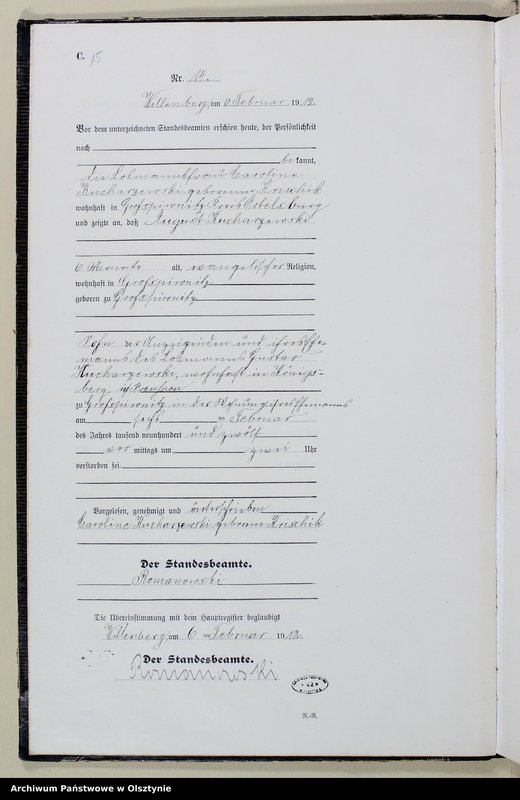 C. 15
Nr. 14.
Willenberg, am 6. Februar 1912.
Vor dem unterzeichneten Standesbeamten erschien heute, der Persönlichkeit
nach
bekannt,
die Losmannsfrau Caroline
Kucharzewski geborenne Krischik
wohnhaft in Großpiwnitz Kreis Ortelsburg
und zeigte an, daß August Kucharzewski
6 Monate alt, evangelischer Religion,
wohnhaft in Großpiwnitz
geboren zu Großpiwnitz
Sohn der Anzeigenden und ihres Ehe-
manns des Losmanns Gustav
Kucharzewski, wohnhaft in Königs-
berg in Preussen
zu Großpiwnitz in der Wohnung ihres Ehemannes
am sechsten Februar
des Jahres tausend neunhundert und zwölf
vor mittags um zwei Uhr
verstorben sei.
Vorgelesen, genehmigt und unterschrieben
Caroline Kucharzewski geborene Krischik
Der Standesbeamte.
Romanowski
Die Übereinstimmung mit dem Hauptregister beglaubigt
Willenberg, am 6 ten Februar 1912.
Der Standesbeamte.
Romanowski
R.-R.
Archiwum Państwowe w Olsztynie